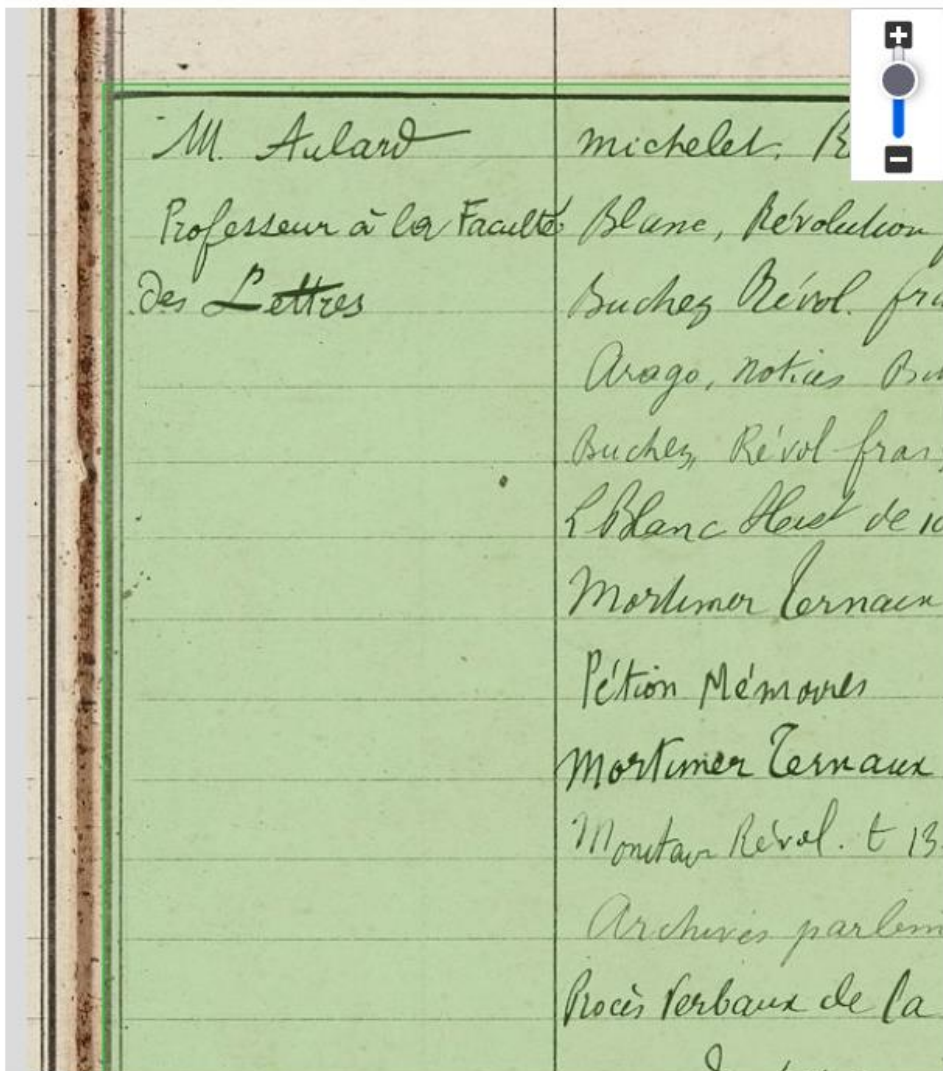 M. Aulard
Professeur à la Faculté
des Lettres
Michelet. R
Blanc, Révolution
Buchez Révol. fra
Arago, notices
Buchez, Révol fran
L Blanc Hist de
Mortimer Ternaux
Pétion Mémoires
Mortimer Ternaux
Moniteur Révol. t 13
Archives parlem
Procès Verbaux de la